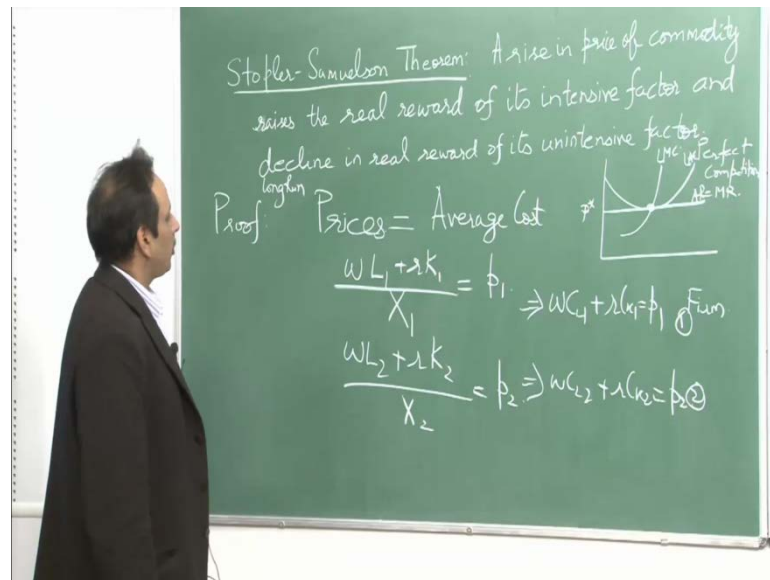 Stopler-Samuelson Theorem: A rise in price of commodity
raises the real reward of its intensive factor and
decline in real reward of its unintensive factor.
longrun
Proof: Prices = Average Cost
LMC
Perfect
Competition
AR=MR
P*
wL₁+rK₁ / X₁ = p₁ ⇒ wC_L₁ + rC_K₁ = p₁ ① Firm
wL₂+rK₂ / X₂ = p₂ ⇒ wC_L₂ + rC_K₂ = p₂ ②